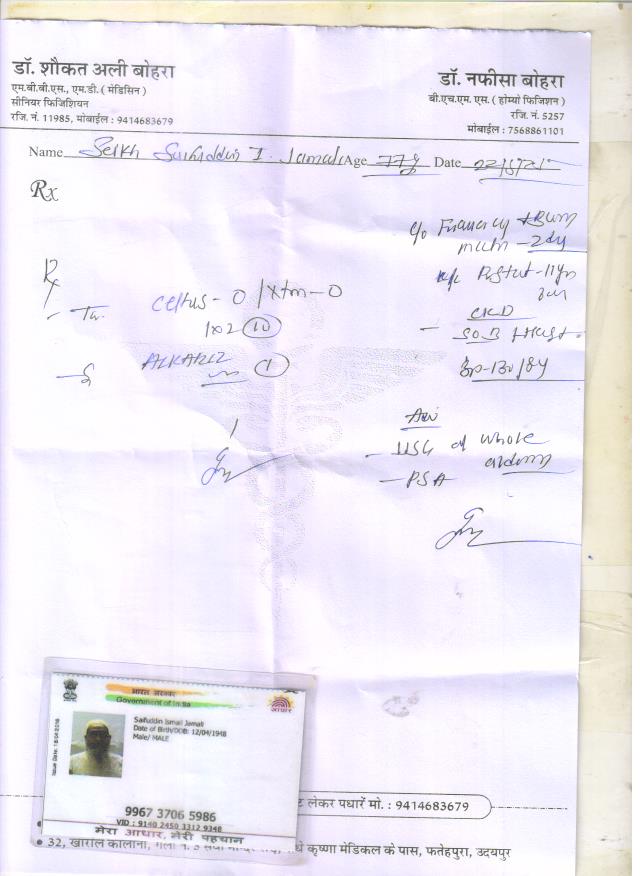 डॉ. शौकत अली बोहरा
एम.बी.बी.एस., एम.डी. ( मेडिसिन )
सीनियर फिजिशियन
रजि. नं. 11985, मोबाईल : 9414683679
डॉ. नफीसा बोहरा
बी.एच.एम. एस. ( होम्यो फिजिशन )
रजि. नं. 5257
मोबाईल : 7568861101
Name Seikh Saifuddin I. Jamali Age 77y Date 22/5/25
Rx
c/o Frequency + Burn
mictu - 2dy
Rx
CKD
- Tab. Celtus - O / Xtm - O
1x2 (10)
ALKARIZ (1)
BP-130/84
Adv
- USG of whole
abdomen
- PSA
भारत सरकार
Government of India
आधार
Issue Date: 18/04/2016
Saifuddin Ismail Jamali
Date of Birth/DOB: 12/04/1948
Male/ MALE
9967 3706 5986
VID : 9140 2450 3312 9348
मेरा आधार, मेरी पहचान
लेकर पधारें मो. : 9414683679
• 32, खारोल कॉलोनी, गली नं. 3
कृष्णा मेडिकल के पास, फतेहपुरा, उदयपुर